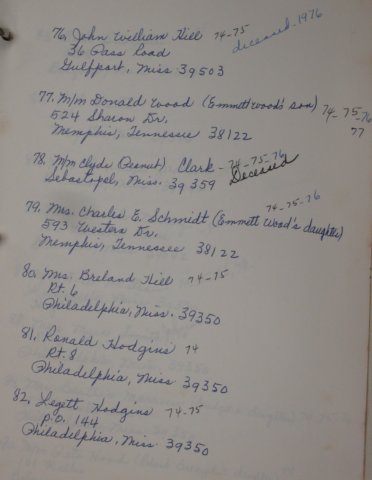 76. John William Hill 74-75 deceased-1976
36 Pass Road
Gulfport, Miss 39503
77. M/m Donald Wood (Emmett Wood's son) 74-75-76
77
524 Sharon Dr.
Memphis, Tennessee 38122
78. M/m Clyde (Peanut) Clark - 74-75-76
Sebastopol, Miss. 39359 Deceased
79. Mrs. Charles E. Schmidt (Emmett Wood's daughter) 74-75-76
593 Western Dr.
Memphis, Tennessee 38122
80. Mrs. Breland Hill 74-75
Rt. 6
Philadelphia, Miss. 39350
81. Ronald Hodgins 74
Rt. 8
Philadelphia, Miss 39350
82. Legett Hodgins 74-75
P.O. 144
Philadelphia, Miss 39350